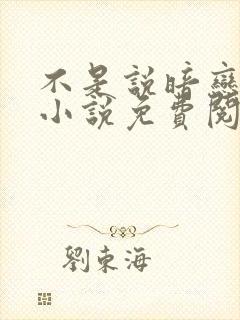 不是說暗戀
小說免費閱
劉東海